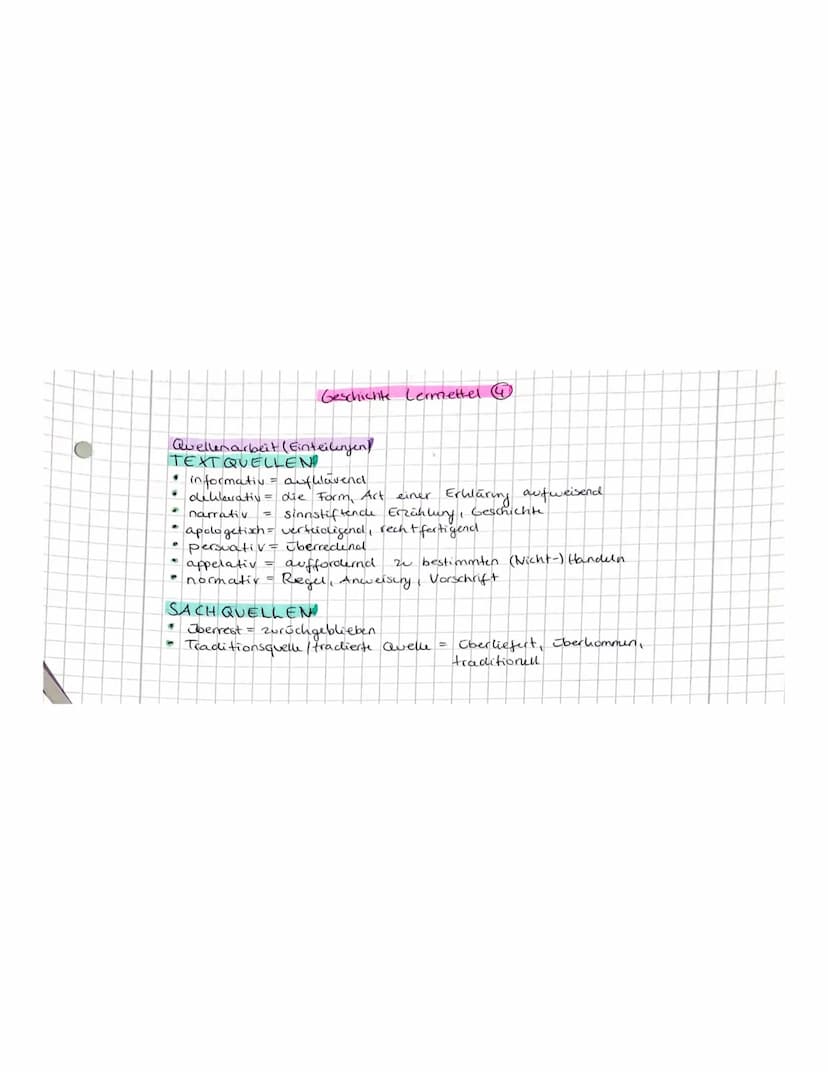 Geschichte Lernzettel ④
Quellenarbeit (Einteilungen)
TEXTQUELLEN
• informativ = aufklärend
• deklarativ = die Form, Art einer Erklärung aufweisend
• narrativ = sinnstiftende Erzählung, Geschichte
• apologetisch = verteidigend, rechtfertigend
• persuativ = überredend
• appelativ = auffordernd zu bestimmten (Nicht-) Handeln
• normativ = Regel, Anweisung, Vorschrift
SACHQUELLEN
• Überrest = zurückgeblieben
• Traditionsquelle / tradierte Quelle = Überliefert, überkommen,
traditionell